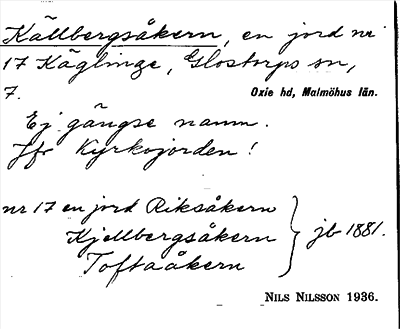 Källbergsåkern, en jord nr
17 Käglinge, Glostorps sn,
7. Oxie hd, Malmöhus län.
Ej gängse namn.
Jfr Kyrkojorden!
nr 17 en jord Riksåkern
Kjellbergsåkern } jb 1881.
Toftaåkern
NILS NILSSON 1936.